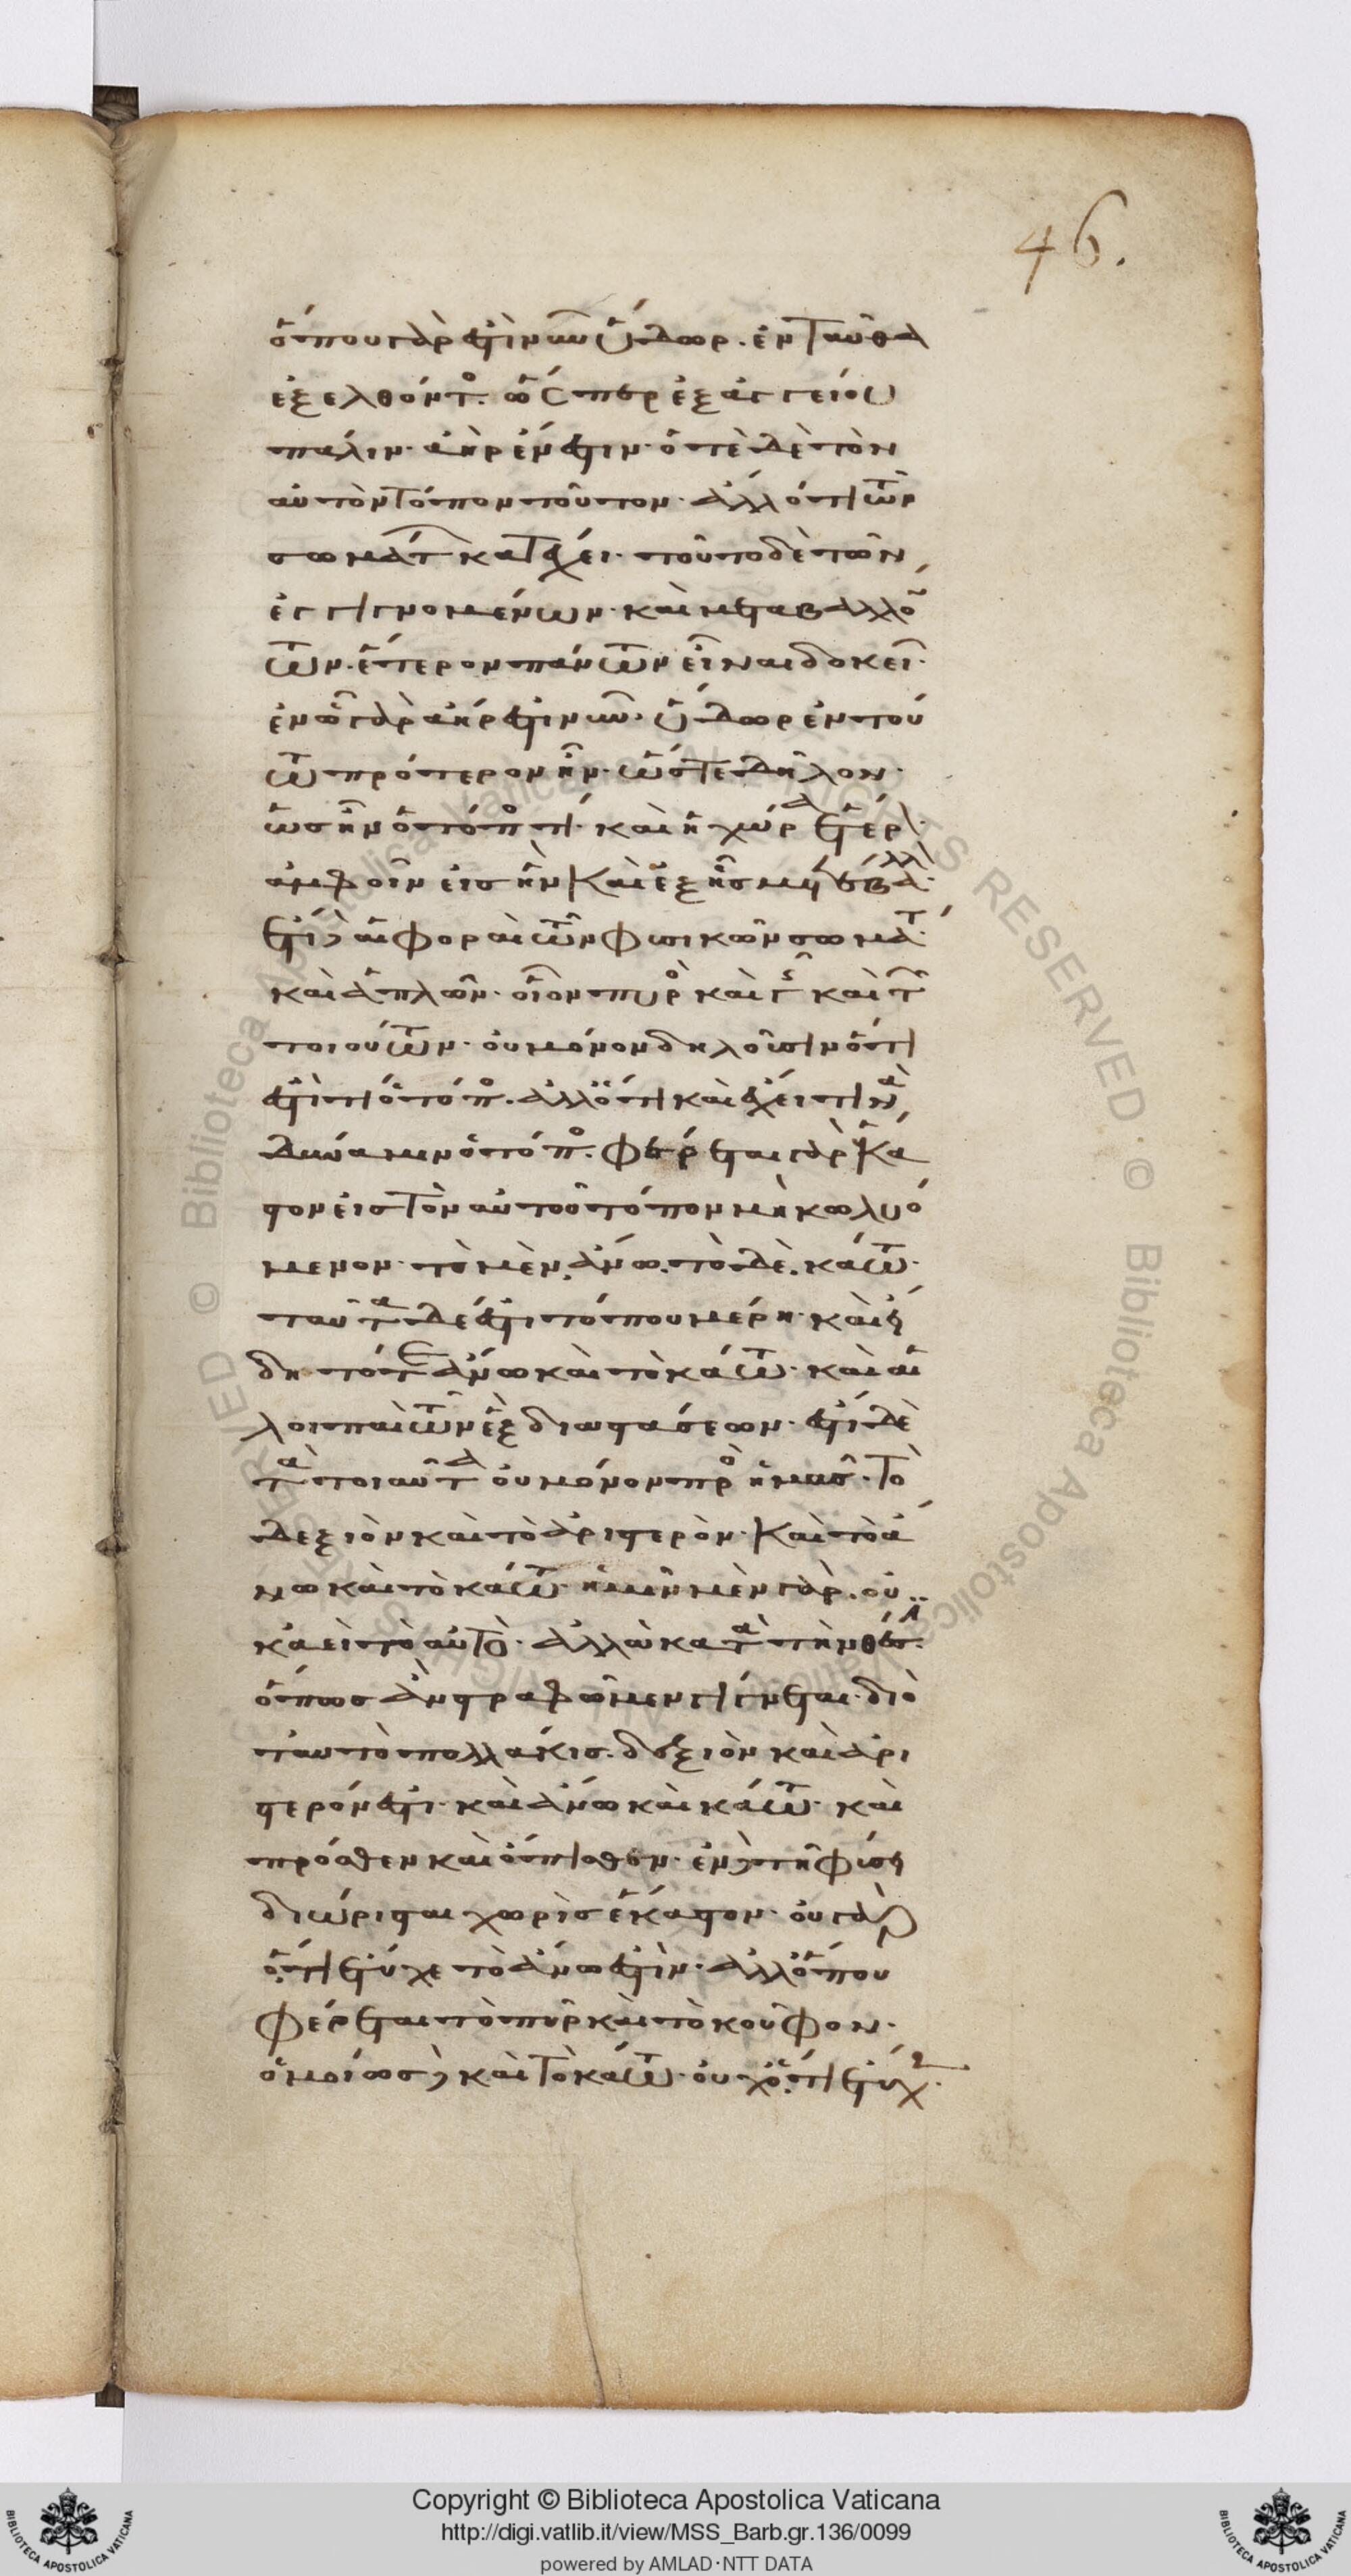 46.
ὅπου γὰρ ἐστὶ νῦν ὕδωρ. ἐνταῦθα
ἐξελθόντος. ὥσπερ ἐξ ἀγγείου
πάλιν· ἀὴρ ἔνεστιν· ὁτὲ δὲ τὸν
αὐτὸν τόπον τοῦτον· ἄλλό τι τῶν
σωμάτων κατέχει· τοῦτο δὲ τῶν
ἐγγιγνομένων· καὶ μεταβαλλόν
των· ἕτερον πάντων εἶναι δοκεῖ·
ἐν ᾧ γὰρ ἀήρ ἐστι νῦν· ὕδωρ ἐν τού
τω πρότερον ἦν· ὥστε δῆλον·
ὡς ἦν ὁ τόπος τί· καὶ ἡ χώρα ἕτερον
ἀμφοῖν εἰς ἣν καὶ ἐξ ἧς μετέβαλλον·
ἔτι δὲ αἱ φοραὶ τῶν φυσικῶν σωμάτων
καὶ ἁπλῶν· οἷον πυρὸς καὶ γῆς καὶ τῶν
τοιούτων· οὐ μόνον δηλοῦσιν ὅτι
ἐστί τι ὁ τόπος. ἀλλ' ὅτι καὶ ἔχει τινὰ
δύναμιν ὁ τόπος. φέρεται γὰρ ἕκα
στον εἰς τὸν αὑτοῦ τόπον μὴ κωλυό
μενον· τὸ μὲν ἄνω. τὸ δὲ. κάτω·
ταῦτα δέ ἐστι τόπου μέρη· καὶ εἴ
δη τό τε ἄνω καὶ τὸ κάτω· καὶ αἱ
λοιπαὶ τῶν ἓξ διαστάσεων· ἔστι δὲ
τὰ τοιαῦτα οὐ μόνον πρὸς ἡμᾶς· τὸ
δεξιὸν καὶ τὸ ἀριστερὸν· καὶ τὸ ἄ
νω καὶ τὸ κάτω· ἡμῖν μὲν γὰρ. οὐ
κ ἀεὶ τὸ αὐτὸ· ἀλλὰ κατὰ τὴν θέσιν.
ὅπως ἂν στραφῶμεν γίγνεται· διὸ
ταυτὸ πολλάκις. δεξιὸν καὶ ἀρι
στερόν ἐστι· καὶ ἄνω καὶ κάτω· καὶ
πρόσθεν καὶ ὄπισθεν· ἐν δὲ τῆ φύσει
διώρισται χωρὶς ἕκαστον· οὐ γὰρ
ὅ,τι ἔτυχε τὸ ἄνω ἐστὶν· ἀλλ' ὅπου
φέρεται τὸ πῦρ καὶ τὸ κοῦφον·
ὁμοίως δὲ καὶ τὸ κάτω· οὐχ ὅ,τι ἔτυχεν·
Copyright © Biblioteca Apostolica Vaticana
http://digi.vatlib.it/view/MSS_Barb.gr.136/0099
powered by AMLAD·NTT DATA